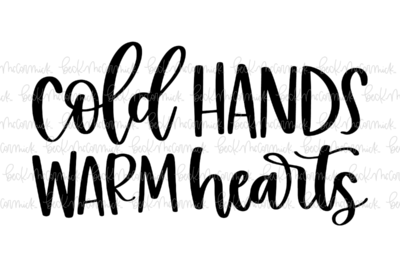 cold HANDS
WARM hearts